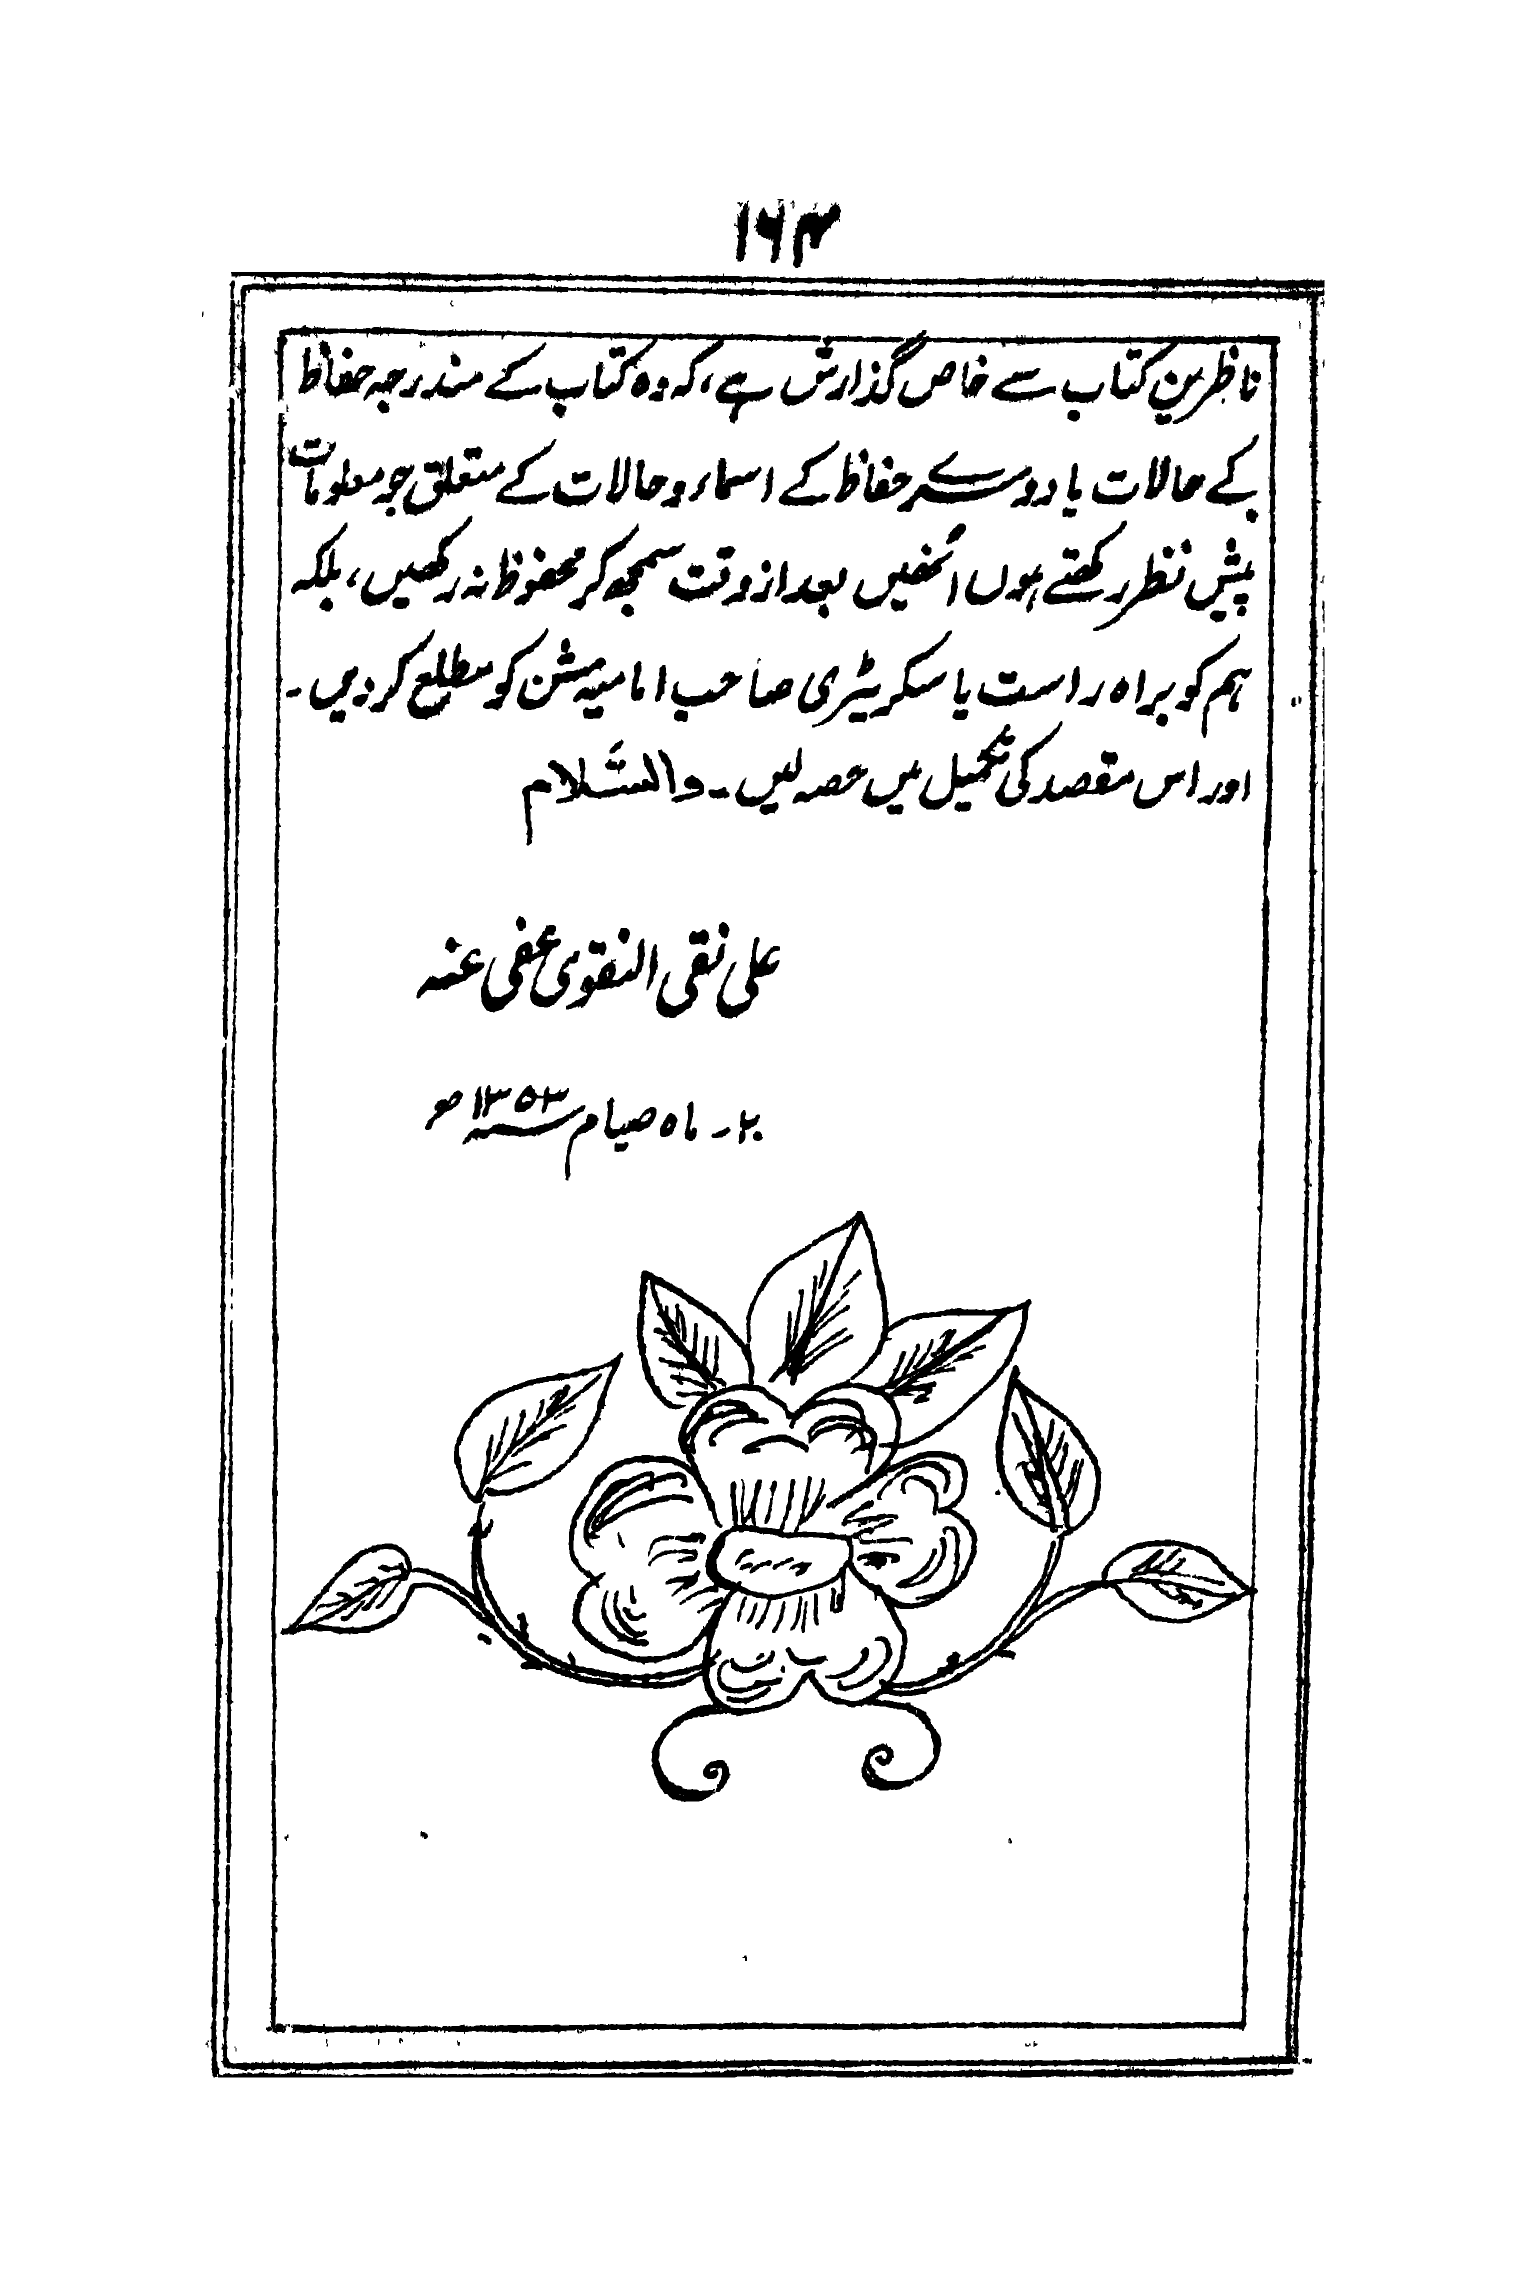 ۱۶۴
ناظرین کتاب سے خاص گذارش ہے، کہ وہ کتاب کے مندرجہ حفاظ
کے حالات یا دوسرے حفاظ کے اسماء و حالات کے متعلق جو معلومات
پیش نظر رکھتے ہوں انھیں بعد از وقت سمجھ کر محفوظ نہ رکھیں، بلکہ
ہم کو براہ راست یا سکریٹری صاحب امامیہ مشن کو مطلع کر دیں۔
اور اس مقصد کی تکمیل میں حصہ لیں۔ والسَّلام
علی نقی النقوی عفی عنہ
۲۰۔ ماہ صیام ۱۳۵۳ھ